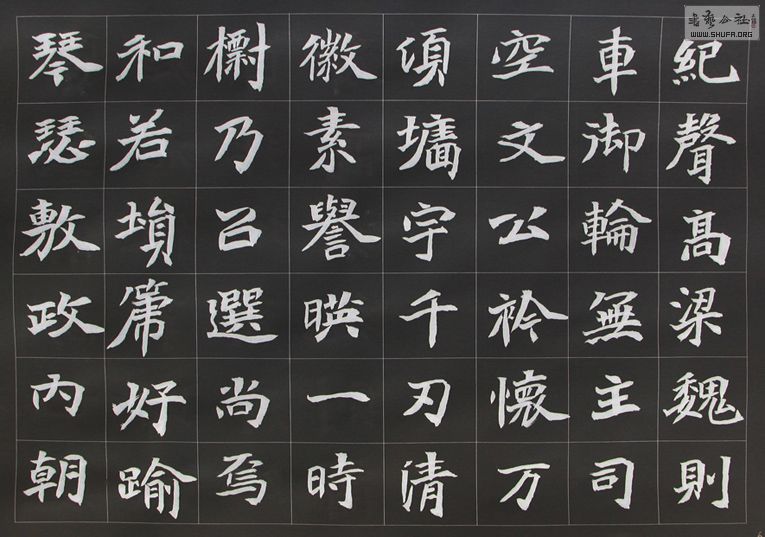 書藝公社
WWW.SHUFA.ORG
紀聲高梁魏則
車御輪無主司
空文公衿懷万
頃墉宇千刃清
徽素譽暎一時
乃召選尚焉
和若塤篪好踰
琴瑟敷政內朝